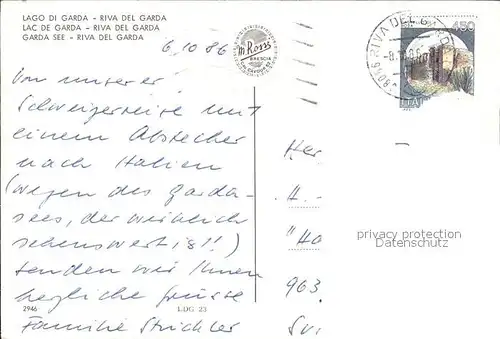 LAGO DI GARDA - RIVA DEL GARDA
LAC DE GARDA - RIVA DEL GARDA
GARDA SEE - RIVA DEL GARDA
6.10 86
Von unserer
Schweizerreise mit
einem Abstecher
nach Italien
(wegen des Garda-
sees, der wirklich
sehenswert ist!!)
senden wir Ihnen
herzliche Grüsse
Familie Strickler
2946
LDG 23
m. Rossi
BRESCIA
RIVA DEL GARDA
450
Her
H.
"Ha
963
privacy protection
Datenschutz